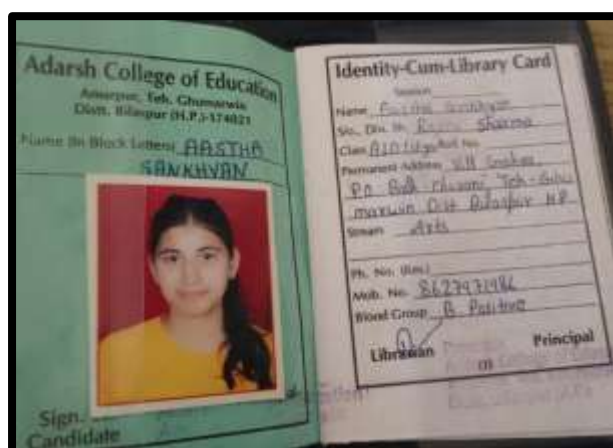 Adarsh College of Education
Amarpur, Teh. Ghumarwin
Distt. Bilaspur (H.P.)-174021
Name (In Block Letters) AASTHA
SANKHYAN
Sign.
Candidate
Identity-Cum-Library Card
Session
Name Aastha Sankhyan
S/o., D/o. Sh. Sharma
Class Roll No.
Permanent Address Vill
P.O. Teh-Ghu
marwin Dist Bilaspur H.P
Stream Arts
Ph. No. (Res.)
Mob. No. 8627971986
Blood Group B Positive
Librarian Principal